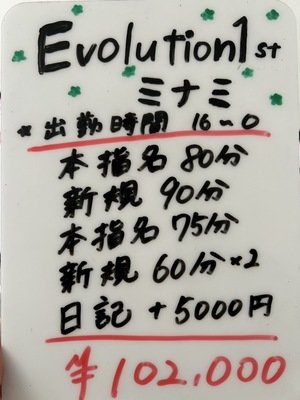 Evolution1st
ミナミ
* 出勤時間 16~0
本指名 80分
新規 90分
本指名 75分
新規 60分×2
日記 + 5000円
¥102,000